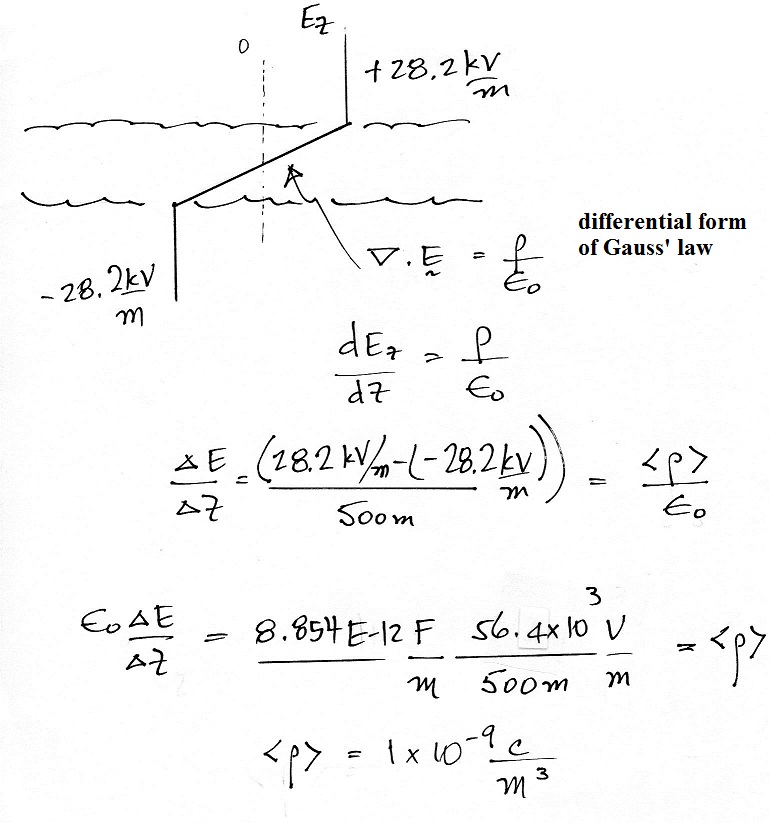 E_z
0
+28.2 kV/m
-28.2 kV/m
differential form
of Gauss' law
∇ · E = ρ/ϵ₀
dE_z/dz = ρ/ϵ₀
ΔE/Δz = (28.2 kV/m - (-28.2 kV/m))/500m = <ρ>/ϵ₀
ϵ₀ΔE/Δz = 8.854E-12 F/m 56.4x10³/500m V/m = <ρ>
<ρ> = 1 x 10⁻⁹ C/m³